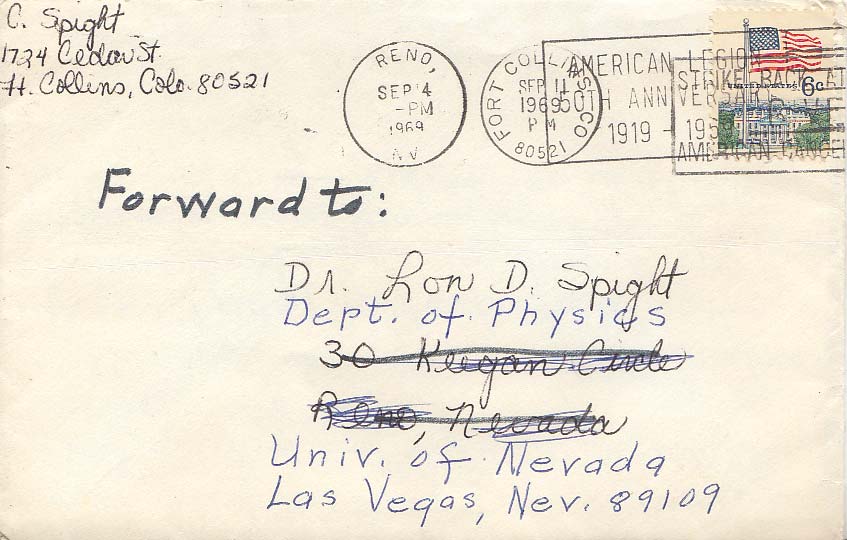 C. Spight
1724 Cedar St.
Ft. Collins, Colo. 80521
RENO,
SEP 4
-PM
1969
NV
FORT COLLINS CO
SEP 11
1969
PM
80521
AMERICAN LEGION
50TH ANNIVERSARY
1919 - 1959
STRIKE BACK AT
AMERICAN CANCER
UNITED STATES 6c
Forward to:
Dr. Lon D. Spight
Dept. of Physics
30 Keegan Circle
Reno, Nevada
Univ. of Nevada
Las Vegas, Nev. 89109